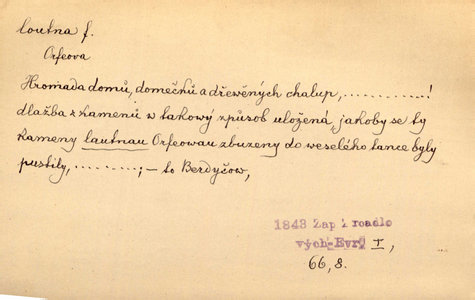 loutna f.
Orfeova
Hromada domů, domečků a dřewěných chalup, ..........!
dlažba z kamenů w takowý způsob uložená, jakoby se ty
kameny lautnau Orfeowau zbuzeny do weselého tance byly
pustily, .........; – to Berdyčow,
1843 Zap Zrcadlo
vých-Evr. I,
66, 8.